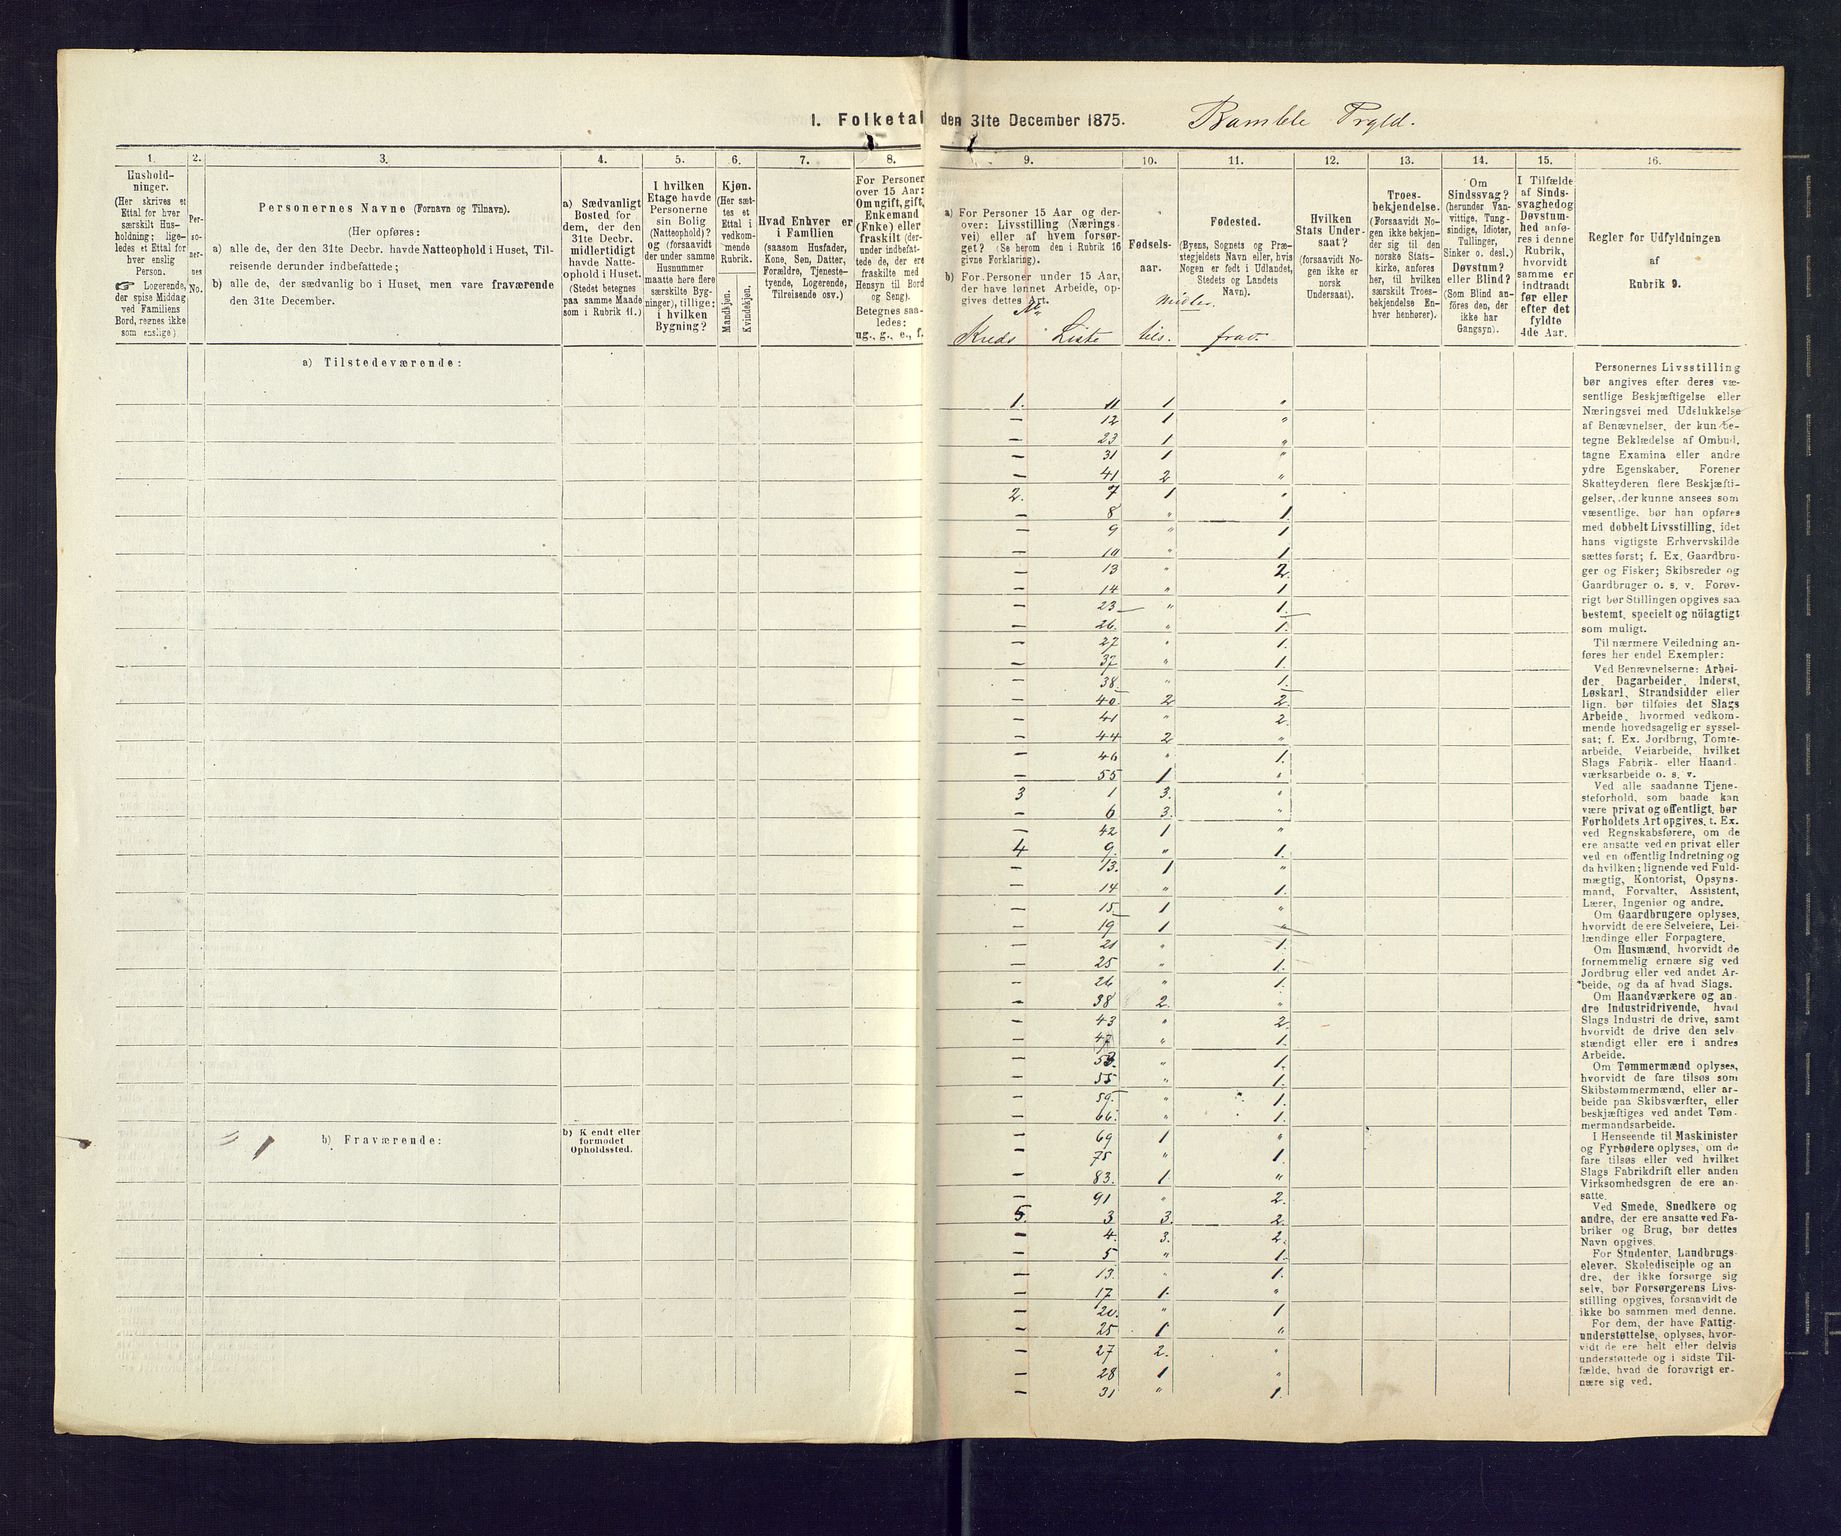 1. Folketal den 31te December 1875. Bamble Prgld.
1.
Hushold-
ninger.
(Her skrives et
Ettal for hver
særskilt Hus-
holdning; lige-
ledes et Ettal for
hver enslig
Person.
Logerende,
der spise Middag
ved Familiens
Bord, regnes ikke
som enslige).
2.
Per-
so-
ner-
nes
No.
3.
Personernes Navne (Fornavn og Tilnavn).
(Her opføres:
a) alle de, der den 31te Decbr. havde Natteophold i Huset, Til-
reisende derunder indbefattede;
b) alle de, der sædvanlig bo i Huset, men vare fraværende
den 31te December.
4.
a) Sædvanligt
Bosted for
dem, der den
31te Decbr.
midlertidigt
havde Natte-
ophold i Huset.
(Stedet betegnes
paa samme Maade
som i Rubrik 11.)
5.
I hvilken
Etage havde
Personerne
sin Bolig
(Natteophold)?
og (forsaavidt
der under samme
Husnummer
maatte høre flere
særskilte Byg-
ninger), tillige:
i hvilken
Bygning?
6.
Kjøn.
(Her sæt-
tes et
Ettal i
vedkom-
mende
Rubrik.
Mandkjøn.
Kvindekjøn.
7.
Hvad Enhver er
i Familien
(saasom Husfader,
Kone, Søn, Datter,
Forældre, Tjeneste-
tyende, Logerende,
Tilreisende osv.)
8.
For Personer
over 15 Aar:
Om ugift, gift,
Enkemand
(Enke) eller
fraskilt (der-
under indbefat-
tede de, der ere
fraskilte med
Hensyn til Bord
og Seng).
Betegnes saa-
ledes:
ug., g., e., f.
9.
a) For Personer 15 Aar og der-
over: Livsstilling (Nærings-
vei) eller af hvem forsør-
get? (Se herom den i Rubrik 16
givne Forklaring).
b) For Personer under 15 Aar,
der have lønnet Arbeide, op-
gives dettes Art.
10.
Fødsels-
aar.
11.
Fødested.
(Byens, Sognets og Præ-
stegjeldets Navn eller, hvis
Nogen er født i Udlandet,
Stedets og Landets
Navn).
12.
Hvilken
Stats Under-
saat?
(forsaavidt No-
gen ikke er
norsk
Undersaat).
13.
Troes-
bekjendelse.
(Forsaavidt No-
gen ikke bekjen-
der sig til den
norske Stats-
kirke, anføres
her, til hvilken
særskilt Troes-
bekjendelse En-
hver henhører).
14.
Om
Sindssvag?
(herunder Van-
vittige, Tung-
sindige, Idioter,
Tullinger,
Sinker o. desl.)
Døvstum?
eller Blind?
(Som Blind an-
føres den, der
ikke har
Gangsyn).
15.
I Tilfælde
af Sinds-
svaghed og
Døvstum-
hed anfø-
res i denne
Rubrik,
hvorvidt
samme er
indtraadt
før eller
efter det
fyldte
4de Aar.
16.
Regler for Udfyldningen
af
Rubrik 9.
No midler.
Kreds Liste tils. frav.
a) Tilstedeværende:
1. 11 1 "
— 12 1 "
— 23 1 "
— 31 1 "
— 41 2 "
2. 7 1 "
— 8 " 1.
— 9 " 1
— 10 " 1
— 13 " 2.
— 14 " 1
— 23 " 1.
— 26. " 1.
— 27 " 1.
— 37 " 1.
— 38. " 1.
— 40. 2 2.
— 41 " 2.
— 44 2 "
— 46 " 1.
— 55 1 "
3 1 3. "
— 6 3. "
— 42 1 "
4 9. " 1.
— 13. 1 "
— 14 " 1.
— 15. 1 "
— 19 1 "
— 21 " 1.
— 25 " 1.
— 26 " 1.
— 38 2. "
— 43 " 2.
— 47 " 1.
— 53. " 1.
— 55 " 1.
— 59. " 1.
— 66. " 1.
— 69 1 "
— 75 " 1.
— 83. 1. "
— 91 " 2.
5. 3 3. 2.
— 4. 3. 2.
— 5 " 1.
— 13. " 1.
— 17 1. "
— 20. " 1
— 25 1 "
— 27 2. "
— 28 1 "
— 31 " 1.
b) Fraværende:
b) Kendt eller
formodet
Opholdssted.
Personernes Livsstilling
bør angives efter deres væ-
sentlige Beskjæftigelse eller
Næringsvei med Udelukkelse
af Benævnelser, der kun be-
tegne Beklædelse af Ombud,
tagne Examina eller andre
ydre Egenskaber. Forener
Skatteyderen flere Beskjæfti-
gelser, der kunne ansees som
væsentlige, bør han opføres
med dobbelt Livsstilling, idet
hans vigtigste Erhvervskilde
sættes først; f. Ex. Gaardbru-
ger og Fisker; Skibsreder og
Gaardbruger o. s. v. Forøv-
rigt bør Stillingen opgives saa
bestemt, specielt og nöiagtigt
som muligt.
Til nærmere Veiledning an-
føres her endel Exempler:
Ved Benævnelserne: Arbei-
der, Dagarbeider, Inderst,
Løskarl, Strandsidder eller
lign. bør tilføies det Slags
Arbeide, hvormed vedkom-
mende hovedsagelig er syssel-
sat; f. Ex. Jordbrug, Tomte-
arbeide, Veiarbeide, hvilket
Slags Fabrik- eller Haand-
værksarbeide o. s. v.
Ved alle saadanne Tjene-
steforhold, som baade kan
være privat og offentligt, bør
Forholdets Art opgives, t. Ex.
ved Regnskabsførere, om de
ere ansatte ved en privat eller
ved en offentlig Indretning og
da hvilken; lignende ved Fuld-
mægtig, Kontorist, Opsyns-
mand, Forvalter, Assistent,
Lærer, Ingeniør og andre.
Om Gaardbrugere oplyses,
hvorvidt de ere Selveiere, Lei-
lændinge eller Forpagtere.
Om Husmænd, hvorvidt de
fornemmelig ernære sig ved
Jordbrug eller ved andet Ar-
beide, og da af hvad Slags.
Om Haandværkere og an-
dre Industridrivende, hvad
Slags Industri de drive, samt
hvorvidt de drive den selv-
stændigt eller ere i andres
Arbeide.
Om Tømmermænd oplyses,
hvorvidt de fare tilsøs som
Skibstømmermænd, eller ar-
beide paa Skibsværfter, eller
beskjæftiges ved andet Tøm-
mermandsarbeide.
I Henseende til Maskinister
og Fyrbødere oplyses, om de
fare tilsøs eller ved hvilket
Slags Fabrikdrift eller anden
Virksomhedsgren de ere an-
satte.
Ved Smede, Snedkere og
andre, der ere ansatte ved Fa-
briker og Brug, bør dettes
Navn opgives.
For Studenter, Landbrugs-
elever, Skoledisciple og an-
dre, der ikke forsørge sig
selv, bør Forsørgerens Livs-
stilling opgives, forsaavidt de
ikke bo sammen med denne.
For dem, der have Fattig-
understøttelse, oplyses, hvor-
vidt de ere helt eller delvis
understøttede og i sidste Til-
fælde, hvad de forøvrigt er-
nære sig ved.